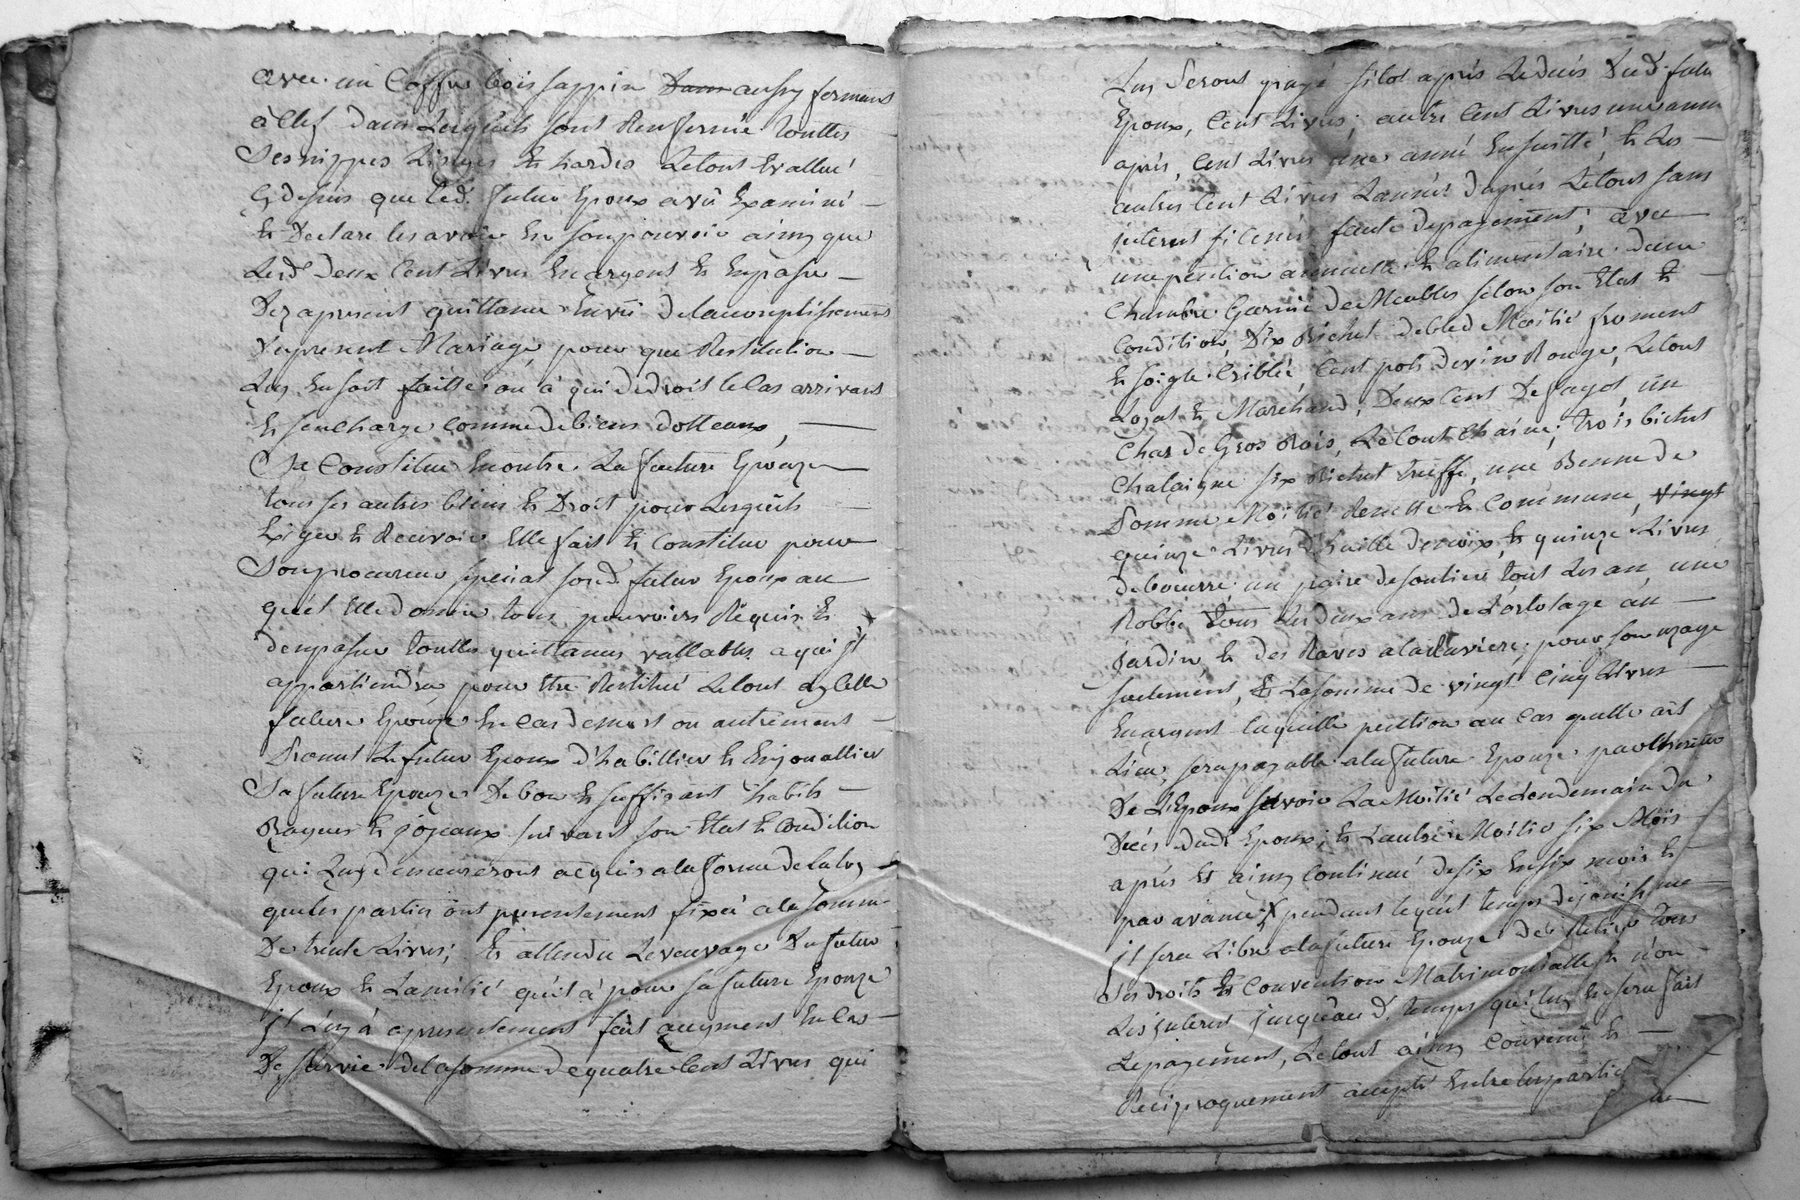 avec un Coffre bois sappin Dam aussy fermant
à Clef dans Lesquels sont Renfermé Touttes
Ses nippes Linges Et hardes Le tout Evallué
Cy dessus que led. futur Epoux a vû Examiné
Et Declare les avoir En son pouvoir ainsy que
Lesd. Deux Cent Livres En argent Et En passe
Dez apresent quittance En vû de laccomplissement
Du present Mariage pour que Restitution
Luy En soit faitte ou à qui de droit le Cas arrivant
Et s'en Charge Comme de biens dotteaux,
Se Constitue En outre La future Epouze
tous ses autres biens Et Droit pour Lesquels
Exiger Et Recevoir Elle fait Et Constitue pour
Son procureur special sond. futur Epoux au
quel Elle donne tous pouvoirs Réquis Et
d'en passer touttes quittances vallables a qui Il
appartiendra pour Etre Restitué Le tout a celle
future Epouze En Cas de mort ou autrement
Promet Le futur Epoux d'habillier Et Enjouallier
Sa future Epouze De bon Et suffisant habits
Bagues Et Joyeaux suivant son Etat Et Condition
qui Luy demeureront acquis a la forme de la loy
que les parties ont presentement fixéé a la somme
De trente Livres; Et attendu Le veuvage Du futur
Epoux Et L'amitié qu'il à pour sa future Epouze
Il Luy à apresentement fait augment En Cas
De survie de la somme de quatre Cent Livres qui
Luy Seront payé sitôt après Le decès Dud. futur
Epoux, Cent Livres; autre Cent Livres une année
après, Cent Livres une anné Ensuitte, Et Les
autres Cent Livres L'année d'après Le tout sans
interest si ce n'est faute de payement; avec
une pention annuelle Et alimentaire d'une
Chambre Garnie de Meubles selon son Etat Et
Condition, Dix Bichet de bled Moitié froment
Et soigle Criblée, Cent pots de vin Rouge, Le tout
Loyal Et Marchand, Deux Cent De fagot, un
Char de Gros Bois, Le tout Chaine; trois bichet
Chataigne six Bichet truffe, une Benne de
Pomme Moitié Renette Et Commune, vingt
quinze Livres d'huille de noix, Et quinze Livres
de beurre; un paire de soulier tout Les an, une
Robbe tous Les deux ans de L'ortolage au
Jardin Et des Raves a la Raviere; pour son uzage
seulement, Et La somme de vingt Cinq Livres
En argent laquelle pention au Cas qu'elle ait
Lieu, sera payable a la future Epouze par L'heritier
De L'Epoux savoir La Moitié Le Lendemain du
Décès dudt Epoux; Et L'autre Moitié six Mois
après Et ainsy Continué de six En six mois Et
par avance, pendant lequel temps de jouissance
Il sera Libre a la future Epouze de Retirer tous
Ses droits Et Convention Matrimonialle Et non
Les interest jusqu'au d. temps qu'il luy En sera fait
Le payement, Le tout ainsy Convenu Et
Reciproquement accepté Entre les parties